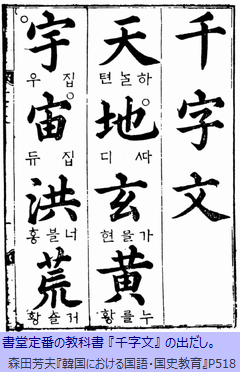 千字文
天 하ᄂᆞᆯ 텬
地 ᄯᅡ 디
玄 가믈 현
黃 누를 황
宇 집 우
宙 집 듀
洪 너블 홍
荒 거츨 황
書堂定番の教科書『千字文』の出だし。
森田芳夫『韓国における国語・国史教育』P518